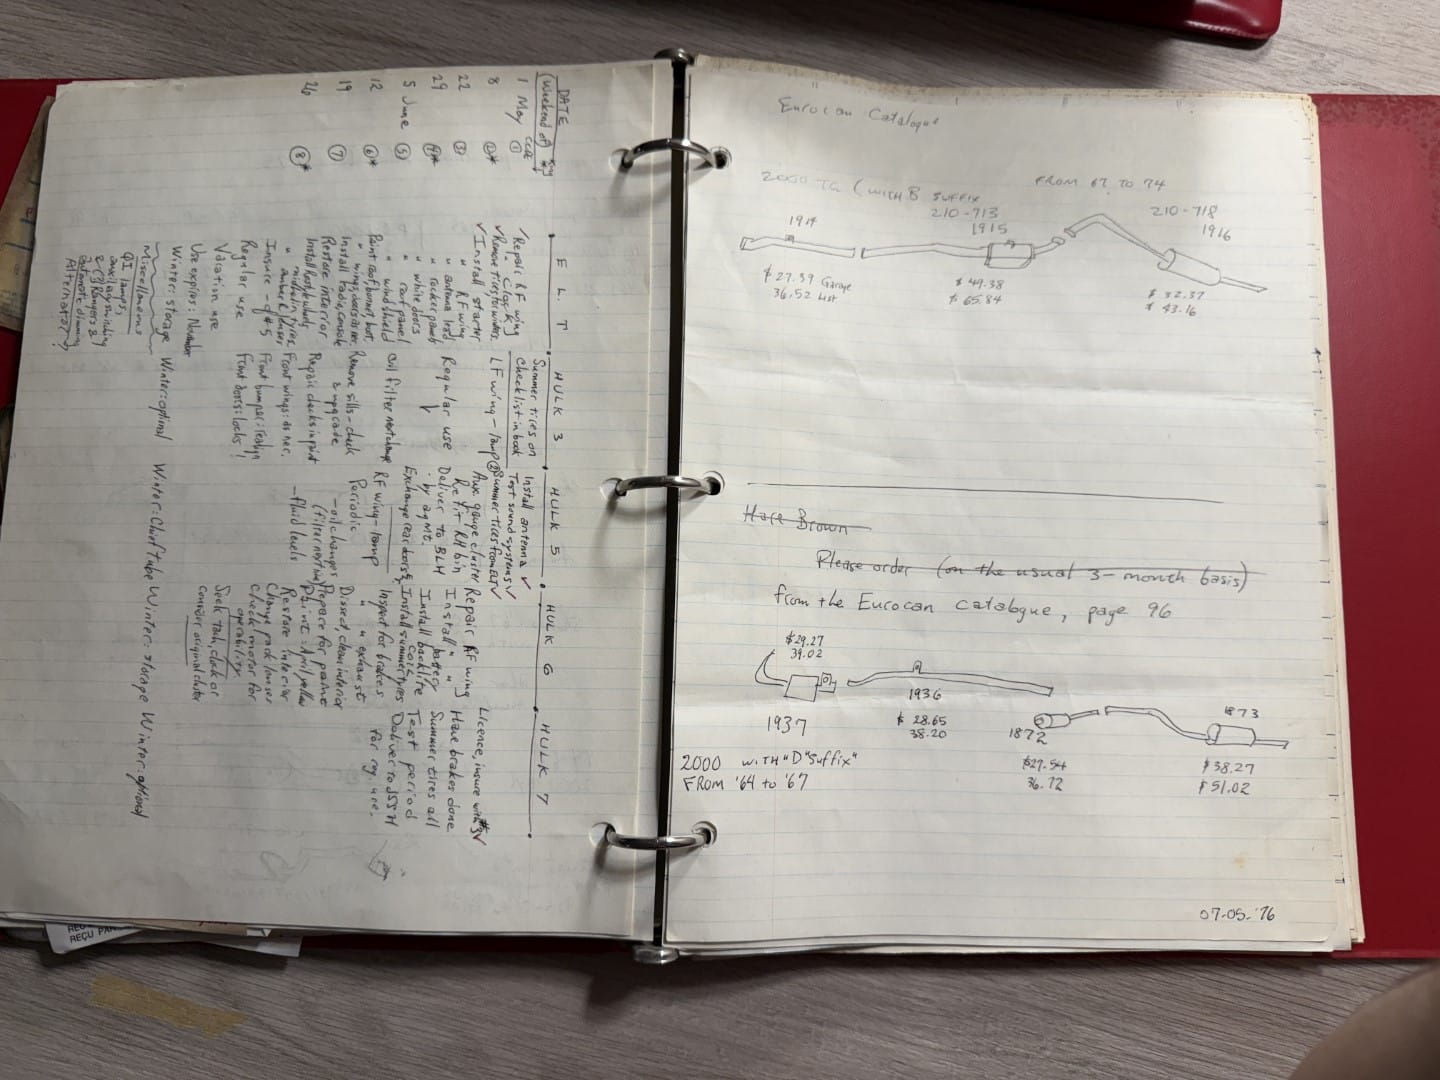 DATE
(Weekend of)
Key
CODE
E L. T
HULK 3
HULK 5
HULK 6
HULK 7
1 May ①
8 ②*
22 ③
29 ④*
5 June ⑤
12 ⑥*
19 ⑦
26 ⑧*
Repair RF wing
Remove tires for winter
Install starter
" RF wing
" antenna lead
" rocker panels
" white doors
" roof panel
" windshield
Paint roof, bonnet, boot,
" wings, doors as nec.
Install radio, console
Restore interior
Insure
Regular use
Vacation use
Use expires: November
Winter: storage
Miscellaneous
QI lamps,
Alternator?
Summer tires on
Checklist in book
LF wing - lamp
Regular use
Oil filter next change
Remove sills - check
& upgrade
Repair cracks in paint
Front wings: as nec.
Front bumper: realign
Front doors: locks!
Winter: optional
Install antenna ✓
Test sound systems ✓
Summer tires from ELT ✓
Aux. gauge cluster
Refit RH bin
Deliver to BLH
by agmt.
Exchange rear doors
RF wing - lamp
Periodic
- oil changes
(filter next time)
- fluid levels
Winter: Chief tube
Repair RF wing
Install battery
" coil
Install backlite
Install summer tires
Inspect for brakes
Dissect, clean interior
" " exhaust
Prepare for paint
Paint: April yellow
Restore interior
Check motor for
operability
Seek Tach, clock or
consider original cluster
Winter: storage
Licence, insure with #3 ✓
Have brakes done
Summer tires all
Test period
Deliver to JSSH
for reg. use.
Winter: optional
Eurocan Catalogue
2000 TC (WITH B SUFFIX FROM 67 TO 74
210-713 210-718
1914 1915 1916
$27.39 Garage $49.38 $32.37
36.52 List $65.84 $43.16
Hare Brown
Please order (on the usual 3-month basis)
from the Eurocan catalogue, page 96
$29.27
39.02
1936
1937
$28.65
38.20
1872
1873
2000 WITH "D" Suffix"
FROM '64 to '67
$27.54
36.72
$38.27
$51.02
07.05.'76
REÇU PAR